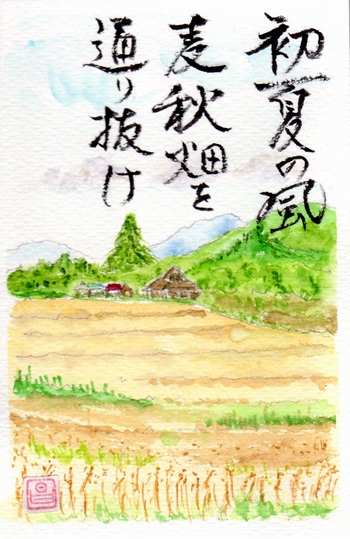 初夏の風
麦秋畑を
通り抜け